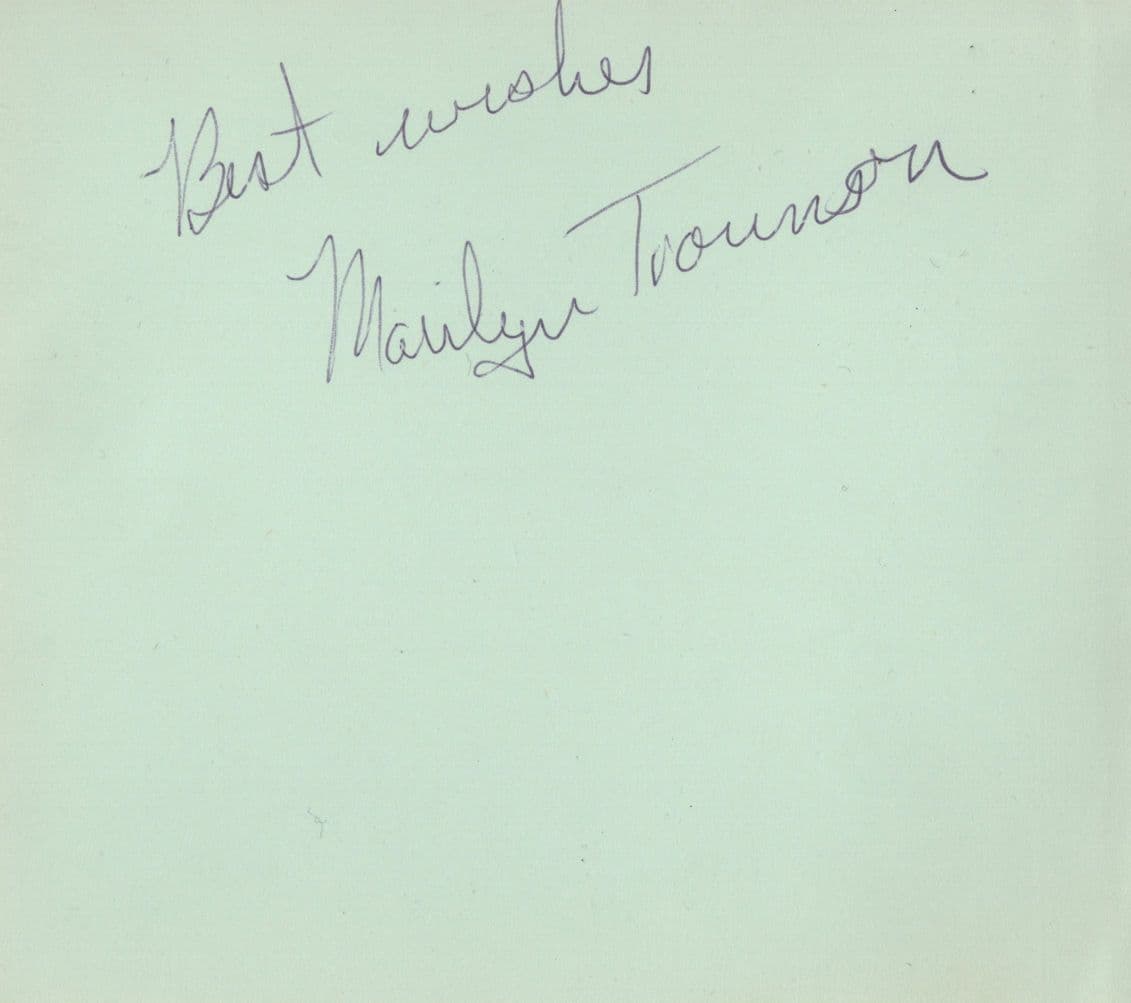 Best wishes
Marilyn Trounson